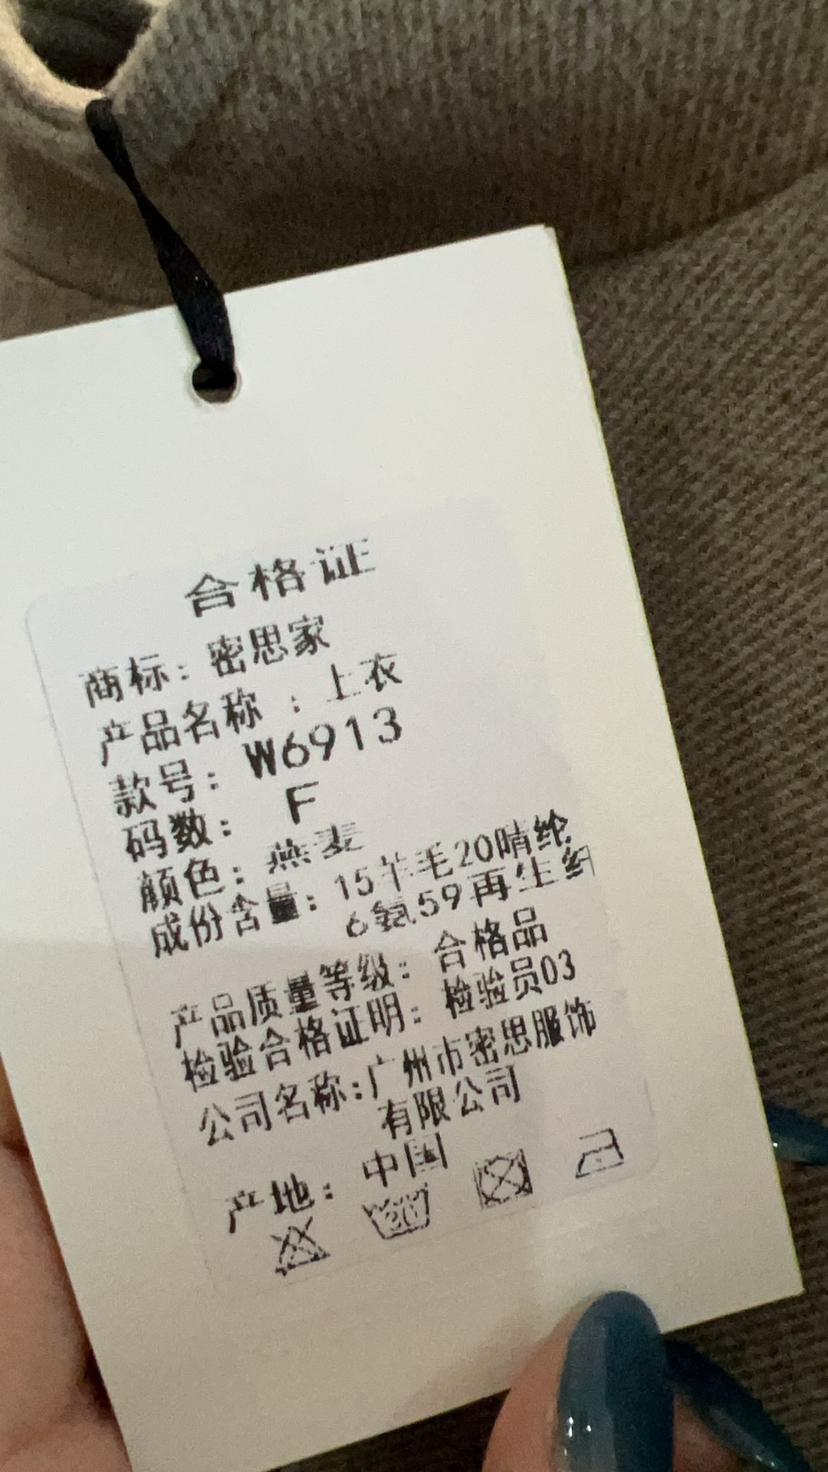 合格证
商标：密思家
产品名称：上衣
款号：W6913
码数：F
颜色：燕麦
成份含量：15羊毛20晴纶
6氨59再生纤
产品质量等级：合格品
检验合格证明：检验员03
公司名称：广州市密思服饰
有限公司
产地：中国